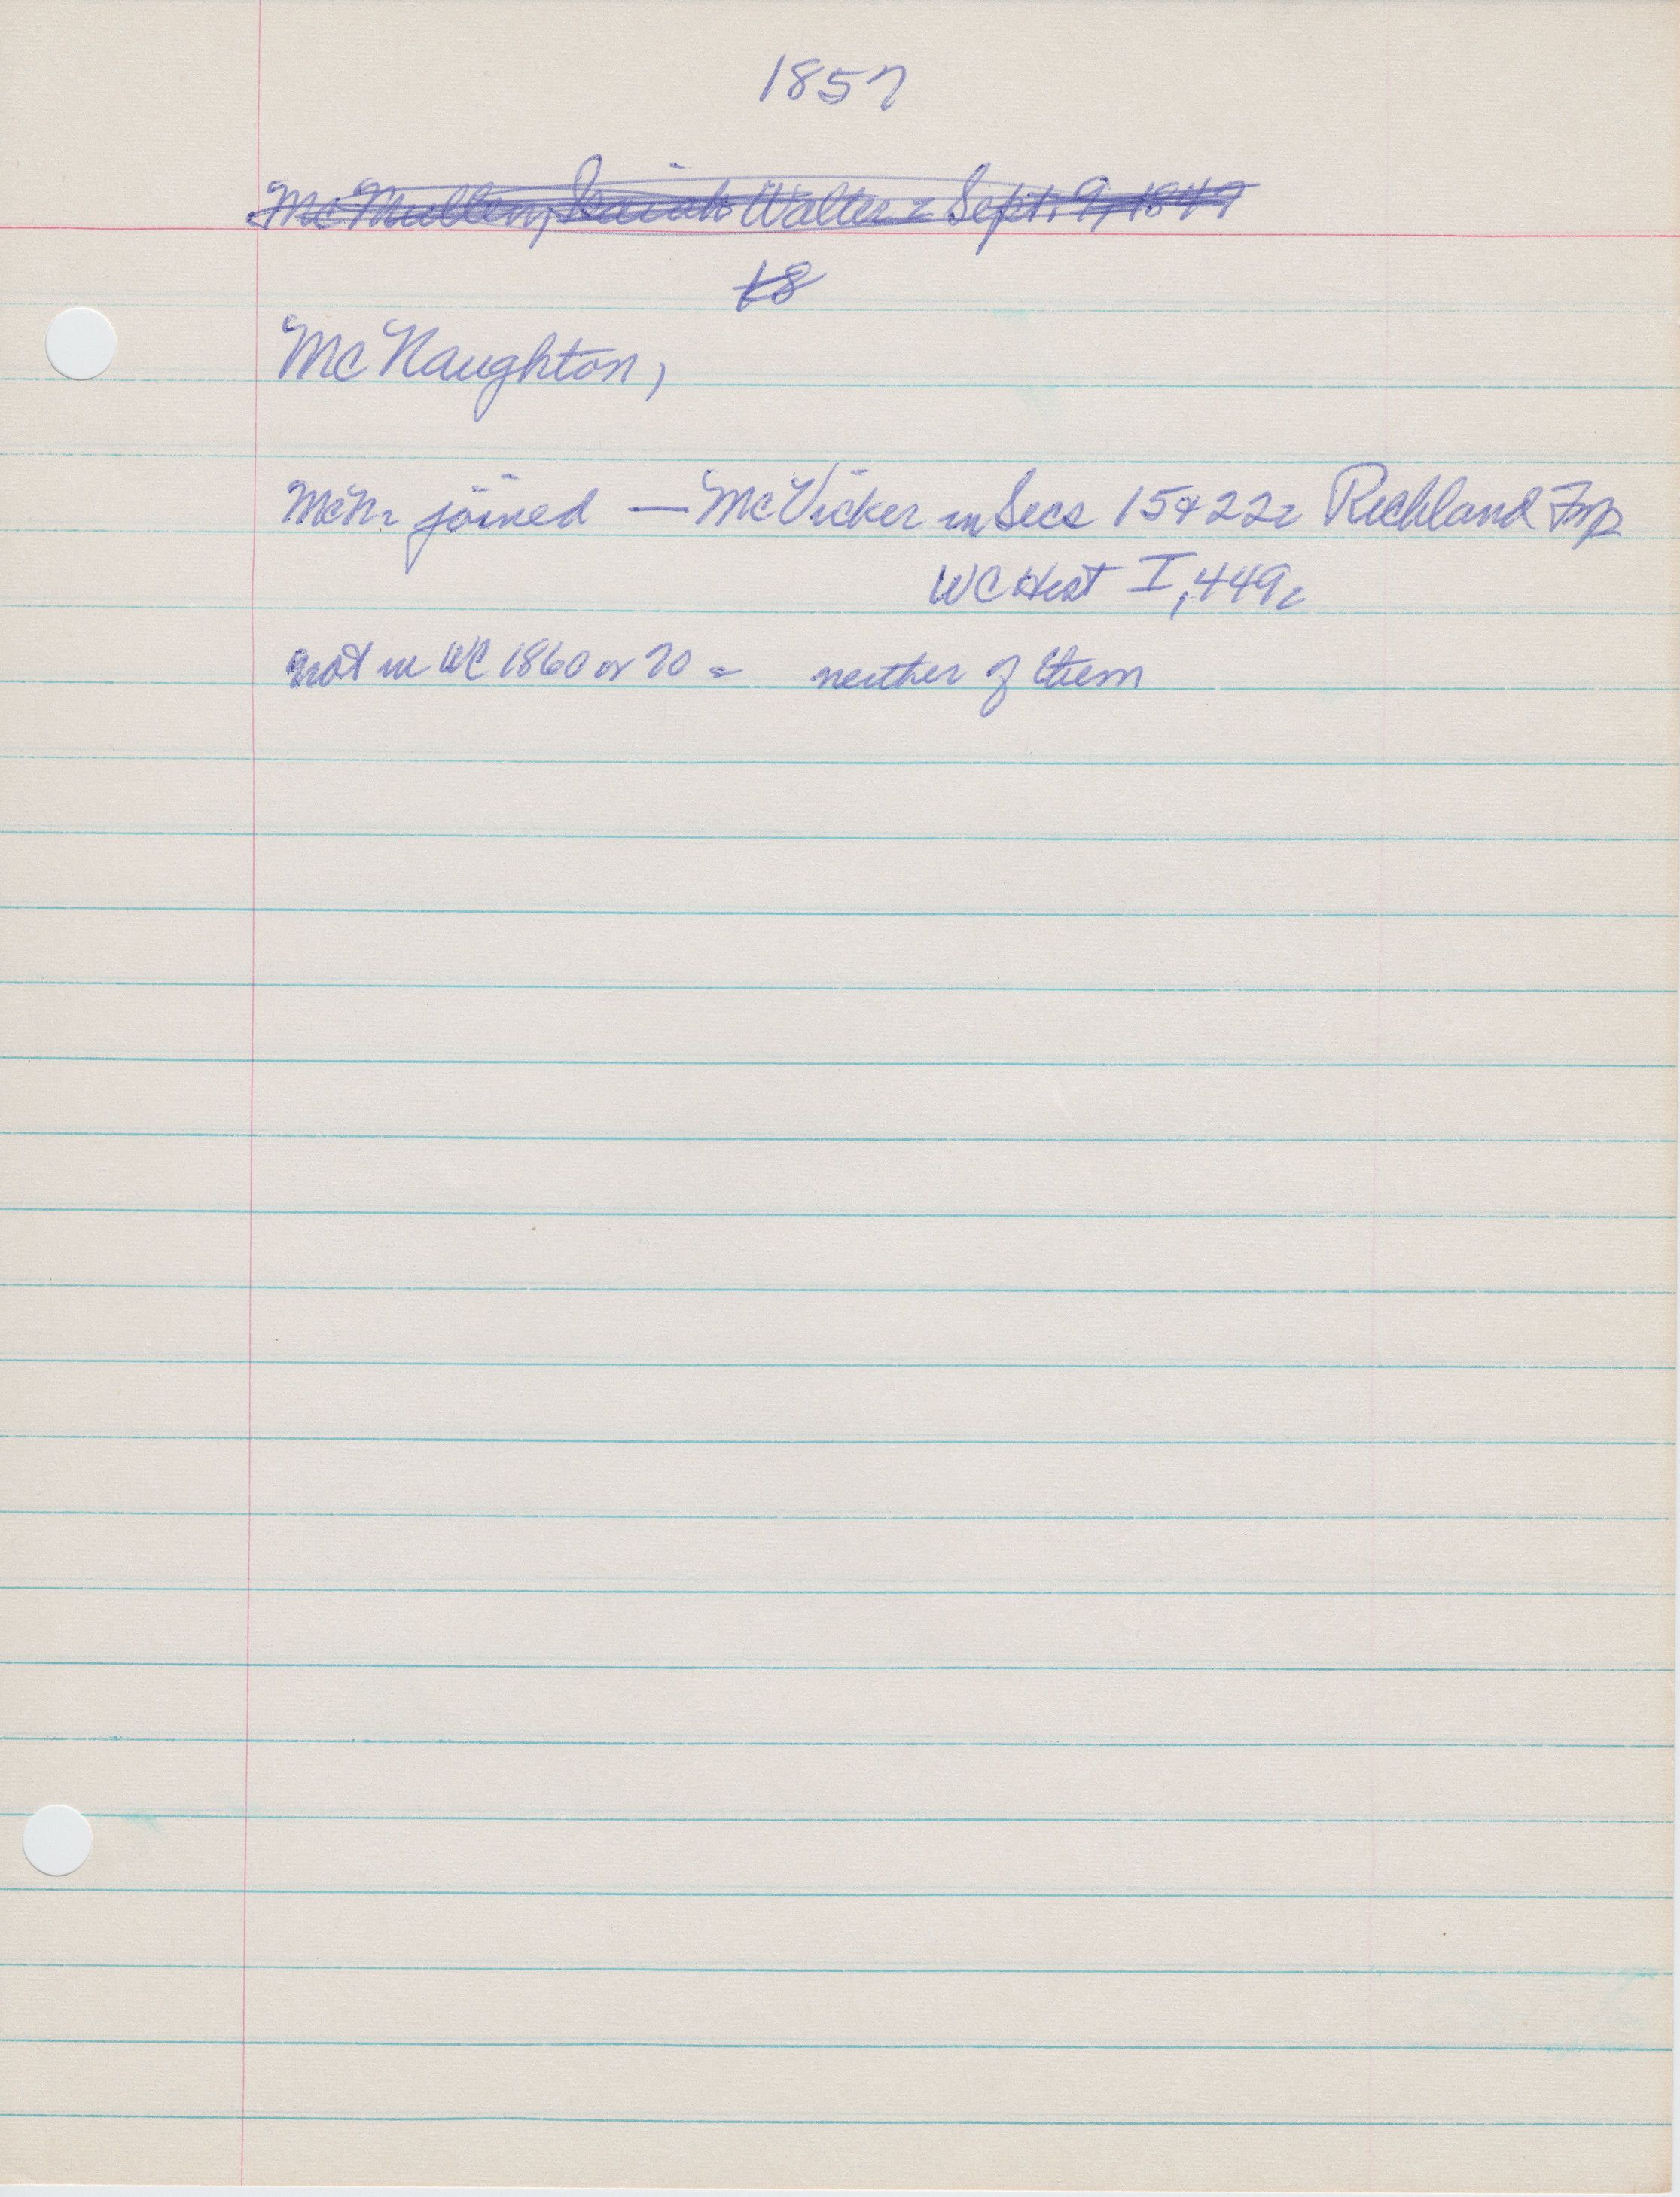 1857
McMullen, Isaiah Walter - Sept. 9, 1849
18
McNaughton,
McN. joined — McVicker in Secs 15 & 22, Richland Twp
WC Hist I, 449.
not in WC 1860 or 70 - neither of them